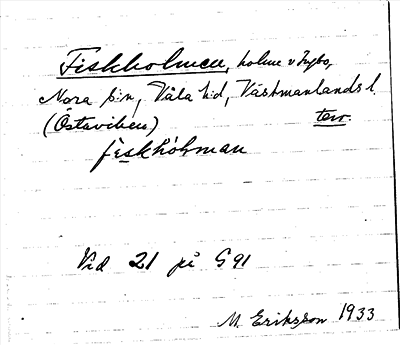 Fiskholmen, holme v Nybo,
Nora s:n, Våla h:d, Västmanlands l.
(Östaviken) terr.
fiskhòlman
Vid 21 på G 91
M. Eriksson 1933